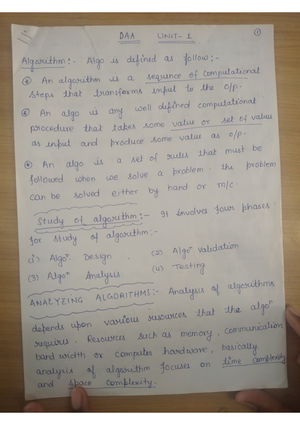 DAA UNIT-1 ①
Algorithm:- Algo is defined as follow:-
An algorithm is a sequence of computational
steps that transforms input to the o/p.
An algo is any well defined computational
procedure that takes some value or set of value
as input and produce some value as o/p.
An algo is a set of rules that must be
followed when we solve a problem. the problem
can be solved either by hand or m/c.
Study of algorithm:- It involve four phases
for study of algorithm:-
(1) Algoᵐ Design. (2) Algoᵐ validation
(3) Algoᵐ Analysis (4) Testing
ANALYZING ALGORITHMS:- Analysis of algorithms
depends upon various resources that the algoᵐ
requires. Resources such as memory, communication
band width or computer hardware, basically
analysis of algorithm focuses on time complexity
and space complexity.